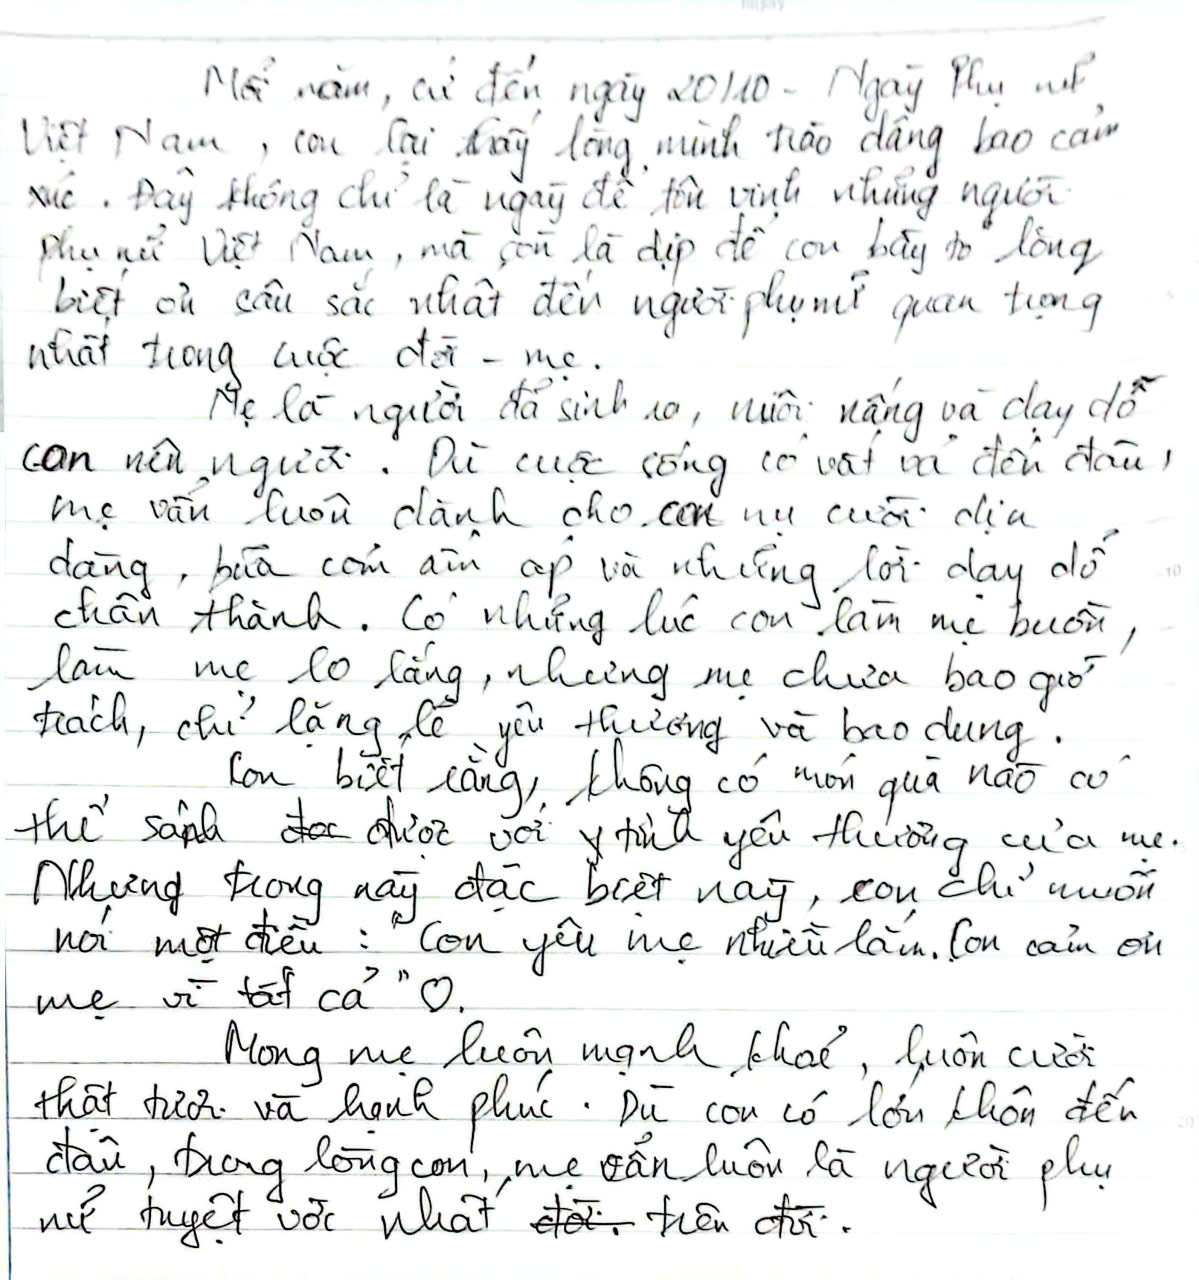 Mỗi năm, cứ đến ngày 20/10 - Ngày Phụ nữ
Việt Nam, con lại thấy lòng mình trào dâng bao cảm
xúc. Đây không chỉ là ngày để tôn vinh những người
phụ nữ Việt Nam, mà còn là dịp để con bày tỏ lòng
biết ơn sâu sắc nhất đến người phụ nữ quan trọng
nhất trong cuộc đời - mẹ.
Mẹ là người đã sinh ra, nuôi nấng và dạy dỗ
con nên người. Dù cuộc sống có vất vả đến đâu,
mẹ vẫn luôn dành cho con nụ cười dịu
dàng, bữa cơm ấm áp và những lời dạy dỗ
chân thành. Có những lúc con làm mẹ buồn,
làm mẹ lo lắng, nhưng mẹ chưa bao giờ
trách, chỉ lặng lẽ yêu thương và bao dung.
Con biết rằng, không có món quà nào có
thể sánh được với tình yêu thương của mẹ.
Nhưng trong này đặc biệt này, con chỉ muốn
nói một điều : "Con yêu mẹ nhiều lắm. Con cảm ơn
mẹ vì tất cả" ♡.
Mong mẹ luôn mạnh khoẻ, luôn cười
thật tươi và hạnh phúc. Dù con có lớn khôn đến
đâu, trong lòng con, mẹ vẫn luôn là người phụ
nữ tuyệt vời nhất trên đời.